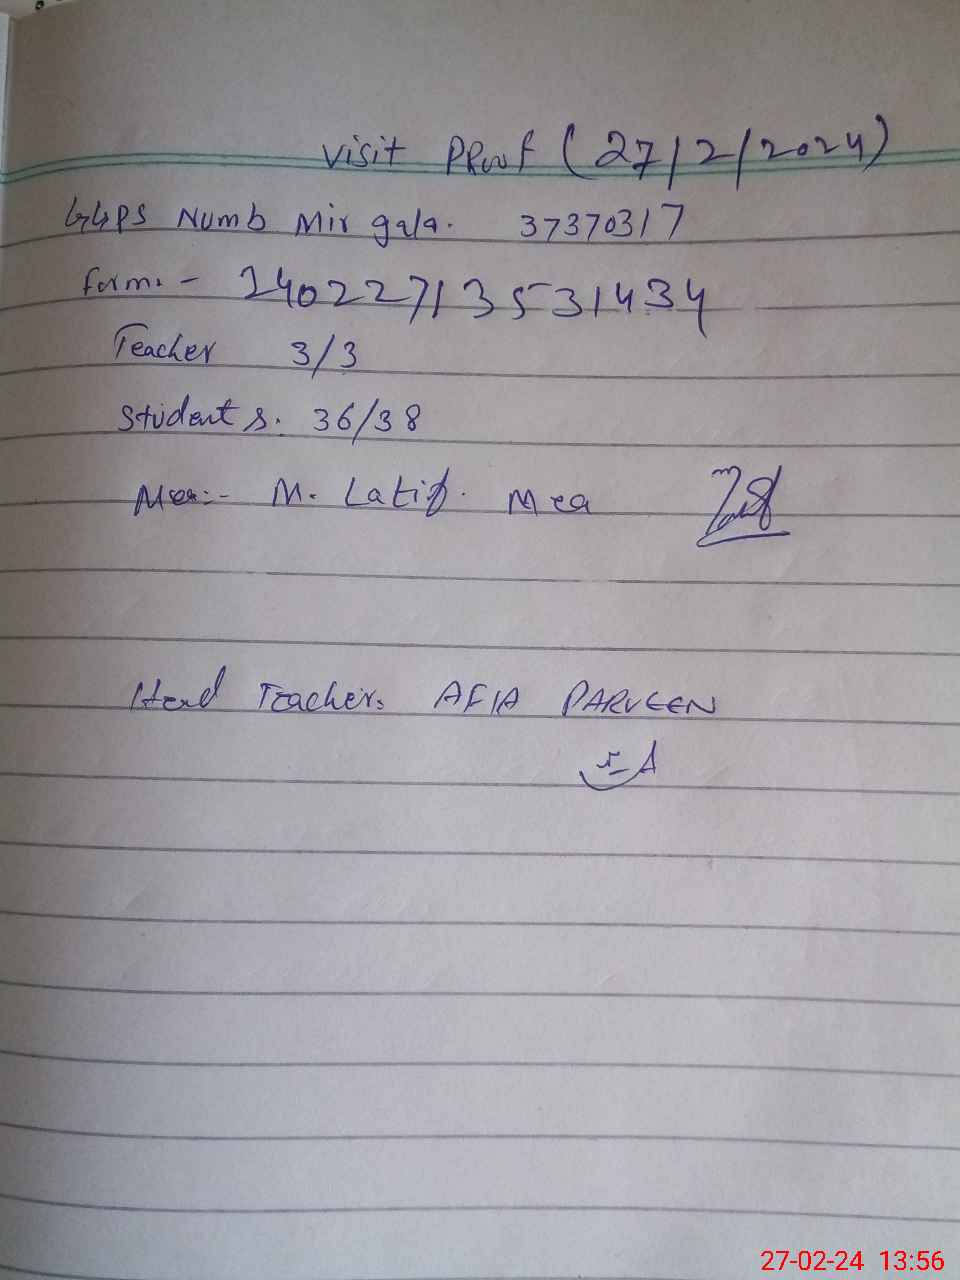 Visit Proof (27/2/2024)
GGPS Numb Mir gala. 37370317
Form:- 24022713531434
Teacher 3/3
Students. 36/38
Mea:- M. Latif. Mea
Head Teacher: AFIA PARVEEN
27-02-24 13:56